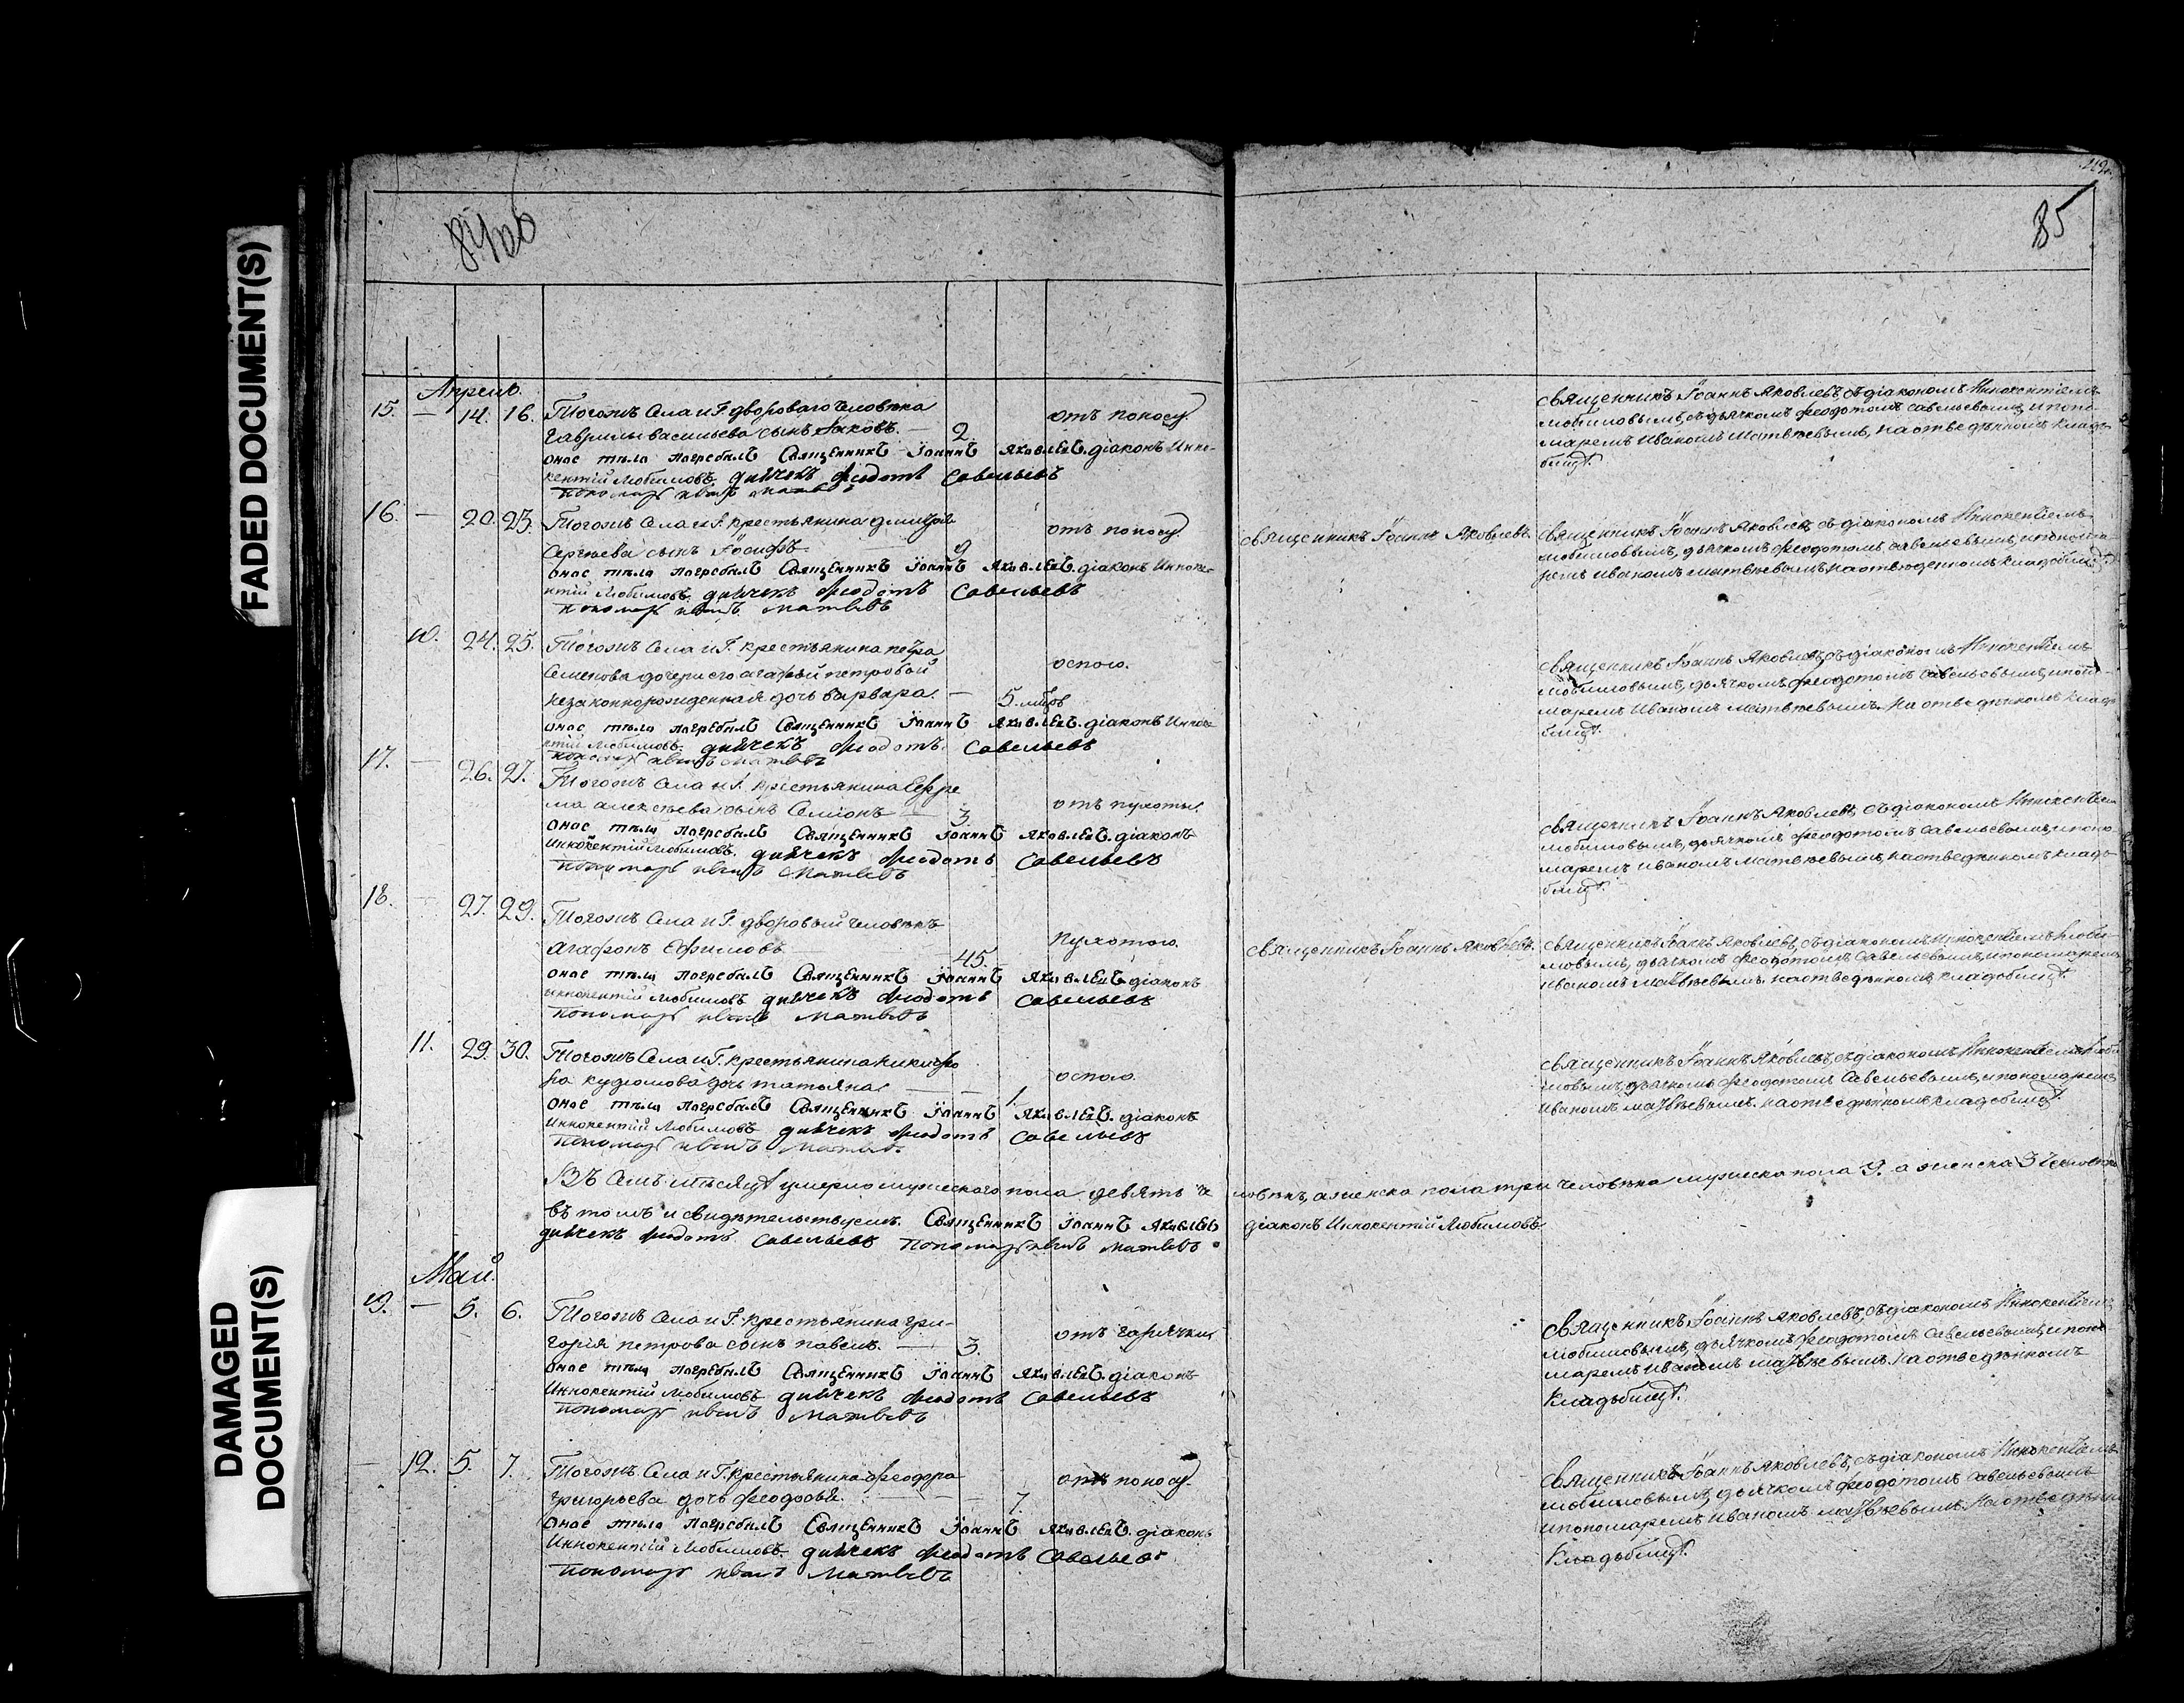 FADED DOCUMENT(S)
DAMAGED DOCUMENT(S)
84 об
85
Апрель.
15. — 14. 16. Тогожъ Села и Г. двороваго человѣка
Гаврилы васильева сынъ Іаковъ. — 2. отъ поносу
оное тѣло погребалъ Священникъ Іоаннъ Яковлевъ. діаконъ Инно-
кентій Любимовъ. дьячекъ Ѳеодотъ Савельевъ
пономарь иванъ матвѣевъ
Священникъ Іоаннъ Яковлевъ, съ діакономъ Иннокентіемъ
любимовымъ, съ дьячкомъ Ѳеодотомъ савельевымъ, и поно-
маремъ Иваномъ Матвѣевымъ, на отведѣнномъ клад-
бищѣ.
16. — 20. 23. Тогожъ Села и Г. крестьянина дмитрѣя
Сергѣева сынъ Іосифъ — 9 отъ поносу
оное тѣло погребалъ Священникъ Іоаннъ Яковлевъ. діаконъ Инноке-
нтій Любимовъ. дьячекъ Ѳеодотъ Савельевъ
пономарь иванъ матвѣевъ
Священникъ Іоаннъ Яковлевъ.
Священникъ Іоаннъ Яковлевъ, съ діакономъ Иннокентіемъ
любимовымъ, дьячкомъ Ѳеодотомъ савельевымъ, и понома-
ремъ иваномъ матвѣевымъ на отведенномъ кладбищѣ.
10. 24. 25. Тогожъ Села и Г. крестьянина петра
Семенова дочери его агафьи петровой
незаконнорожденная дочь варвара. — 5. мѣс оспою.
оное тѣло погребалъ Священникъ Іоаннъ Яковлевъ. діаконъ Инноке-
нтій Любимовъ. дьячекъ Ѳеодотъ Савельевъ
пономарь иванъ матвѣевъ
Священникъ Іоаннъ Яковлевъ, съ діакономъ Иннокентіемъ
любимовымъ, дьячкомъ Ѳеодотомъ савельевымъ, и поно-
маремъ Иваномъ матвѣевымъ. на отведѣнномъ клад-
бищѣ.
17. — 26. 27. Тогожъ Села и Г. крестьянина Ефре
ма алексѣева сынъ Симіонъ — 3. отъ пухоты.
оное тѣло погребалъ Священникъ Іоаннъ Яковлевъ. діаконъ
Иннокентій Любимовъ. дьячекъ Ѳеодотъ Савельевъ
пономарь иванъ Матвѣевъ
Священникъ Іоаннъ Яковлевъ, съ діакономъ Иннокентіем
любимовымъ, дьячкомъ Ѳеодотомъ савельевымъ, и поно-
маремъ иваномъ матвѣевымъ, на отведѣнномъ кладь-
бищѣ.
18. — 27. 29. Тогожъ Села и Г. дворовый человѣкъ
агафонъ Ефимовъ 45. Пухотою.
оное тѣло погребалъ Священникъ Іоаннъ Яковлевъ. діаконъ
иннокентій Любимовъ дьячекъ Ѳеодотъ Савельевъ
пономарь иванъ Матвѣевъ
Священникъ Іоаннъ Яковлевъ.
Священникъ Іоаннъ Яковлевъ, съ діакономъ Иннокентіемъ Люби-
мовымъ, дьячкомъ Ѳеодотомъ Савельевымъ, и пономаремъ
иваномъ матвѣевымъ. на отведѣнномъ кладбищѣ.
11. 29. 30. Тогожъ Села и Г. крестьянина никифо
ра кудюмова дочь татьяна — — 1. оспою.
оное тѣло погребалъ Священникъ Іоаннъ Яковлевъ. діаконъ
Иннокентій Любимовъ дьячекъ Ѳеодотъ Савельевъ
пономарь иванъ Матвѣ.
Священникъ Іоаннъ Яковлевъ, съ діакономъ Иннокентіемъ Люби
мовымъ, дьячкомъ Ѳеодотомъ Савельевымъ, и пономаремъ
иваномъ матвѣевымъ. на отведѣнномъ кладбищѣ.
Въ Семъ мѣсяцѣ умерло мужескаго пола девять человѣкъ, а женска пола три человѣка мужеска пола 9. а женска 3 человѣка
въ томъ и свидѣтельствуемъ. Священникъ Іоаннъ Яковлевъ діаконъ Иннокентій Любимовъ
дьячекъ Ѳеодотъ Савельевъ Пономарь иванъ матвѣевъ
Май.
19. — 5. 6. Тогожъ Села и Г. крестьянина гри-
горія петрова сынъ павелъ. — 3. отъ горячки
оное тѣло погребалъ Священникъ Іоаннъ Яковлевъ. діаконъ
Иннокентій Любимовъ дьячекъ Ѳеодотъ Савельевъ
пономарь иванъ Матвѣевъ
Священникъ Іоаннъ Яковлевъ, съ діакономъ Иннокентіемъ
любимовымъ, дьячкомъ Ѳеодотомъ савельевымъ, и поно-
маремъ иваномъ матвѣевымъ. на отведѣнномъ
Кладьбищѣ.
— 12. 5. 7. Тогожъ Села и Г. крестьянина Ѳеодора
григорьева дочь Ѳеодосья. — — 7. отъ поносу.
оное тѣло погребалъ Священникъ Іоаннъ Яковлевъ. діаконъ
Иннокентій Любимовъ. дьячекъ Ѳеодотъ Савельевъ
пономарь иванъ Матвѣевъ
Священникъ Іоаннъ Яковлевъ, съ діакономъ Иннокентіемъ
любимовымъ, дьячкомъ Ѳеодотомъ савельевымъ
и пономаремъ Иваномъ матвѣевымъ на отведѣнн
Кладьбищѣ.